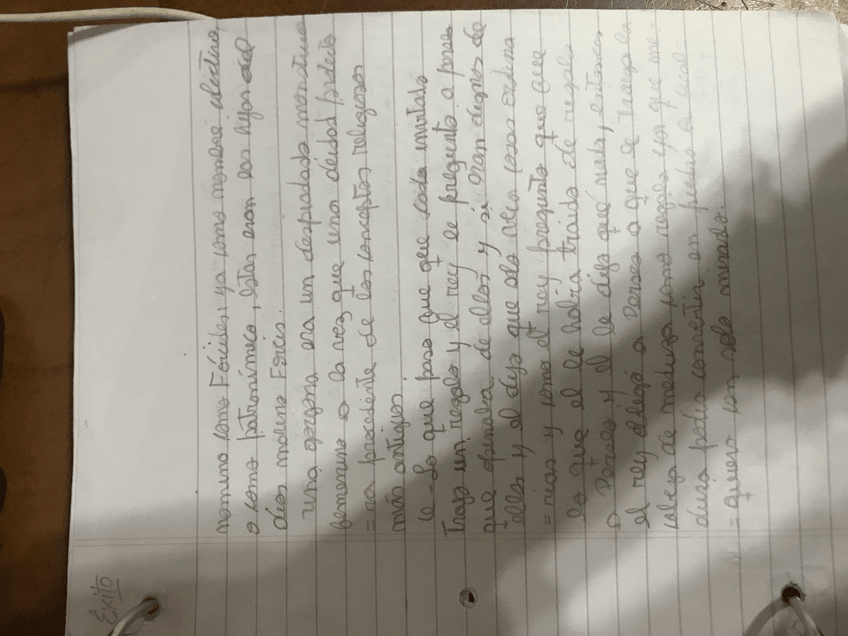 Éxito
nomino como Fórcides, ya como nombre colectivo,
o como patronímico, estas eran las hijas del
dios marino Forcis.
Una gorgona era un despiadado monstruo
femenino a la vez que una deidad protecto
=ra procedente de los conceptos religiosos
más antiguos.
6- Lo que paso fue que cada invitado
trajo un regalo y el rey le pregunto a perseo
que opinaba de ellos y si eran dignos de
ellos y el dijo que solo eran cosas ordina
=rias y como el rey pregunto que que
lo que el le habia traido de regalo
a Perseo y el le dijo qué nada, entonces
el rey obligó a Perseo a que le traiga la
cabeza de medusa como regalo ya que me-
dusa podia convertir en piedra a cual-
=quiera con solo mirarlo.